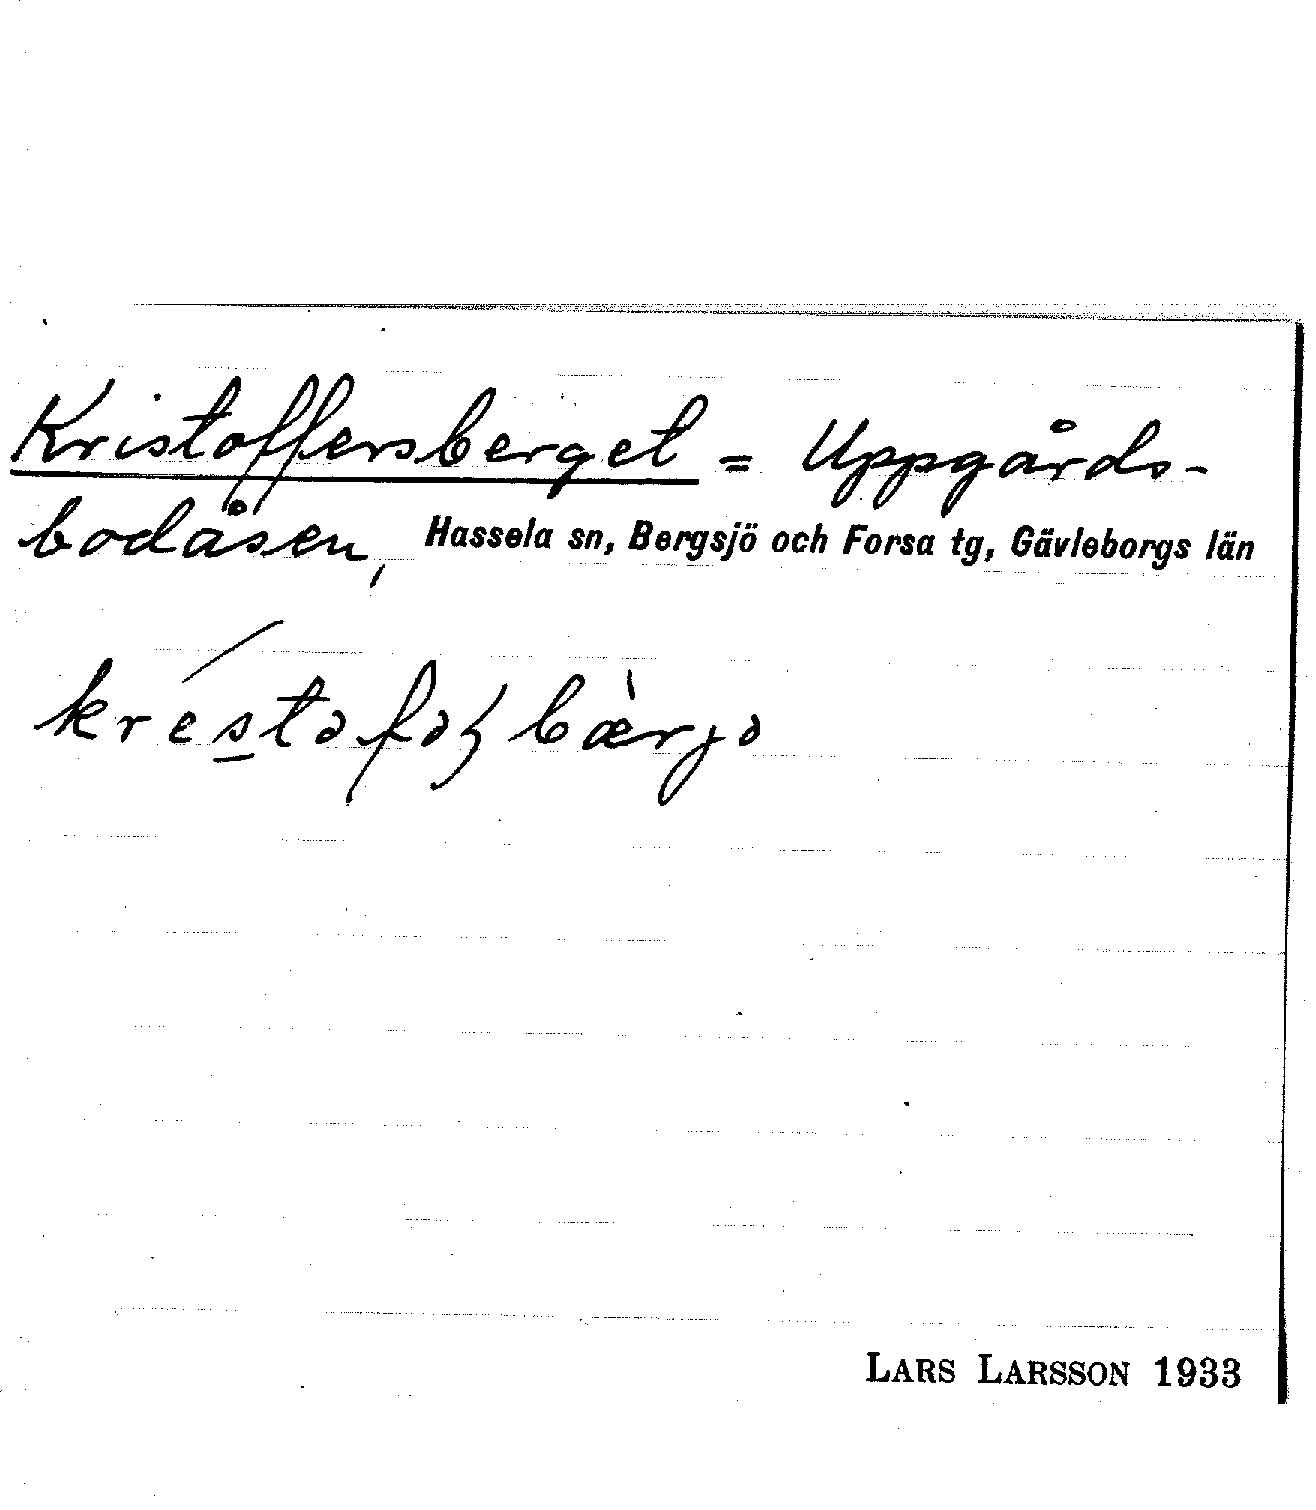 Kristoffersberget = Uppgårds-
bodåsen, Hassela sn, Bergsjö och Forsa tg, Gävleborgs län
LARS LARSSON 1933